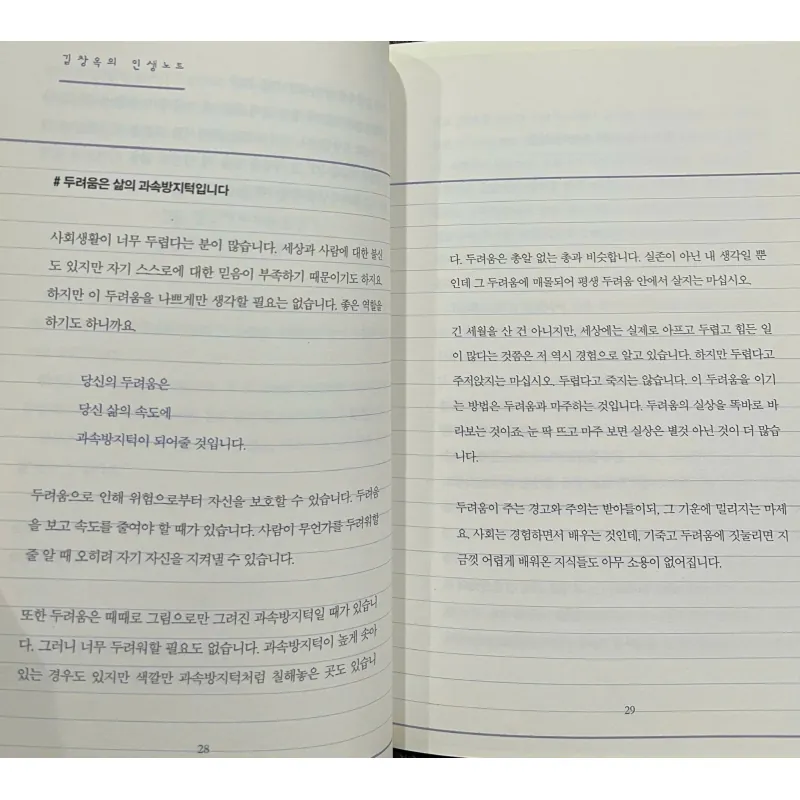 김창옥의 인생노트
# 두려움은 삶의 과속방지턱입니다
사회생활이 너무 두렵다는 분이 많습니다. 세상과 사람에 대한 불신
도 있지만 자기 스스로에 대한 믿음이 부족하기 때문이기도 하지요.
하지만 이 두려움을 나쁘게만 생각할 필요는 없습니다. 좋은 역할을
하기도 하니까요.
당신의 두려움은
당신 삶의 속도에
과속방지턱이 되어줄 것입니다.
두려움으로 인해 위험으로부터 자신을 보호할 수 있습니다. 두려움
을 보고 속도를 줄여야 할 때가 있습니다. 사람이 무언가를 두려워할
줄 알 때 오히려 자기 자신을 지켜낼 수 있습니다.
또한 두려움은 때때로 그림으로만 그려진 과속방지턱일 때가 있습니
다. 그러니 너무 두려워할 필요도 없습니다. 과속방지턱이 높게 솟아
있는 경우도 있지만 색깔만 과속방지턱처럼 칠해놓은 곳도 있습니
28
다. 두려움은 총알 없는 총과 비슷합니다. 실존이 아닌 내 생각일 뿐
인데 그 두려움에 매몰되어 평생 두려움 안에서 살지는 마십시오.
긴 세월을 산 건 아니지만, 세상에는 실제로 아프고 두렵고 힘든 일
이 많다는 것쯤은 저 역시 경험으로 알고 있습니다. 하지만 두렵다고
주저앉지는 마십시오. 두렵다고 죽지는 않습니다. 이 두려움을 이기
는 방법은 두려움과 마주하는 것입니다. 두려움의 실상을 똑바로 바
라보는 것이죠. 눈 딱 뜨고 마주 보면 실상은 별것 아닌 것이 더 많습
니다.
두려움이 주는 경고와 주의는 받아들이되, 그 기운에 밀리지는 마세
요. 사회는 경험하면서 배우는 것인데, 기죽고 두려움에 짓눌리면 지
금껏 어렵게 배워온 지식들도 아무 소용이 없어집니다.
29